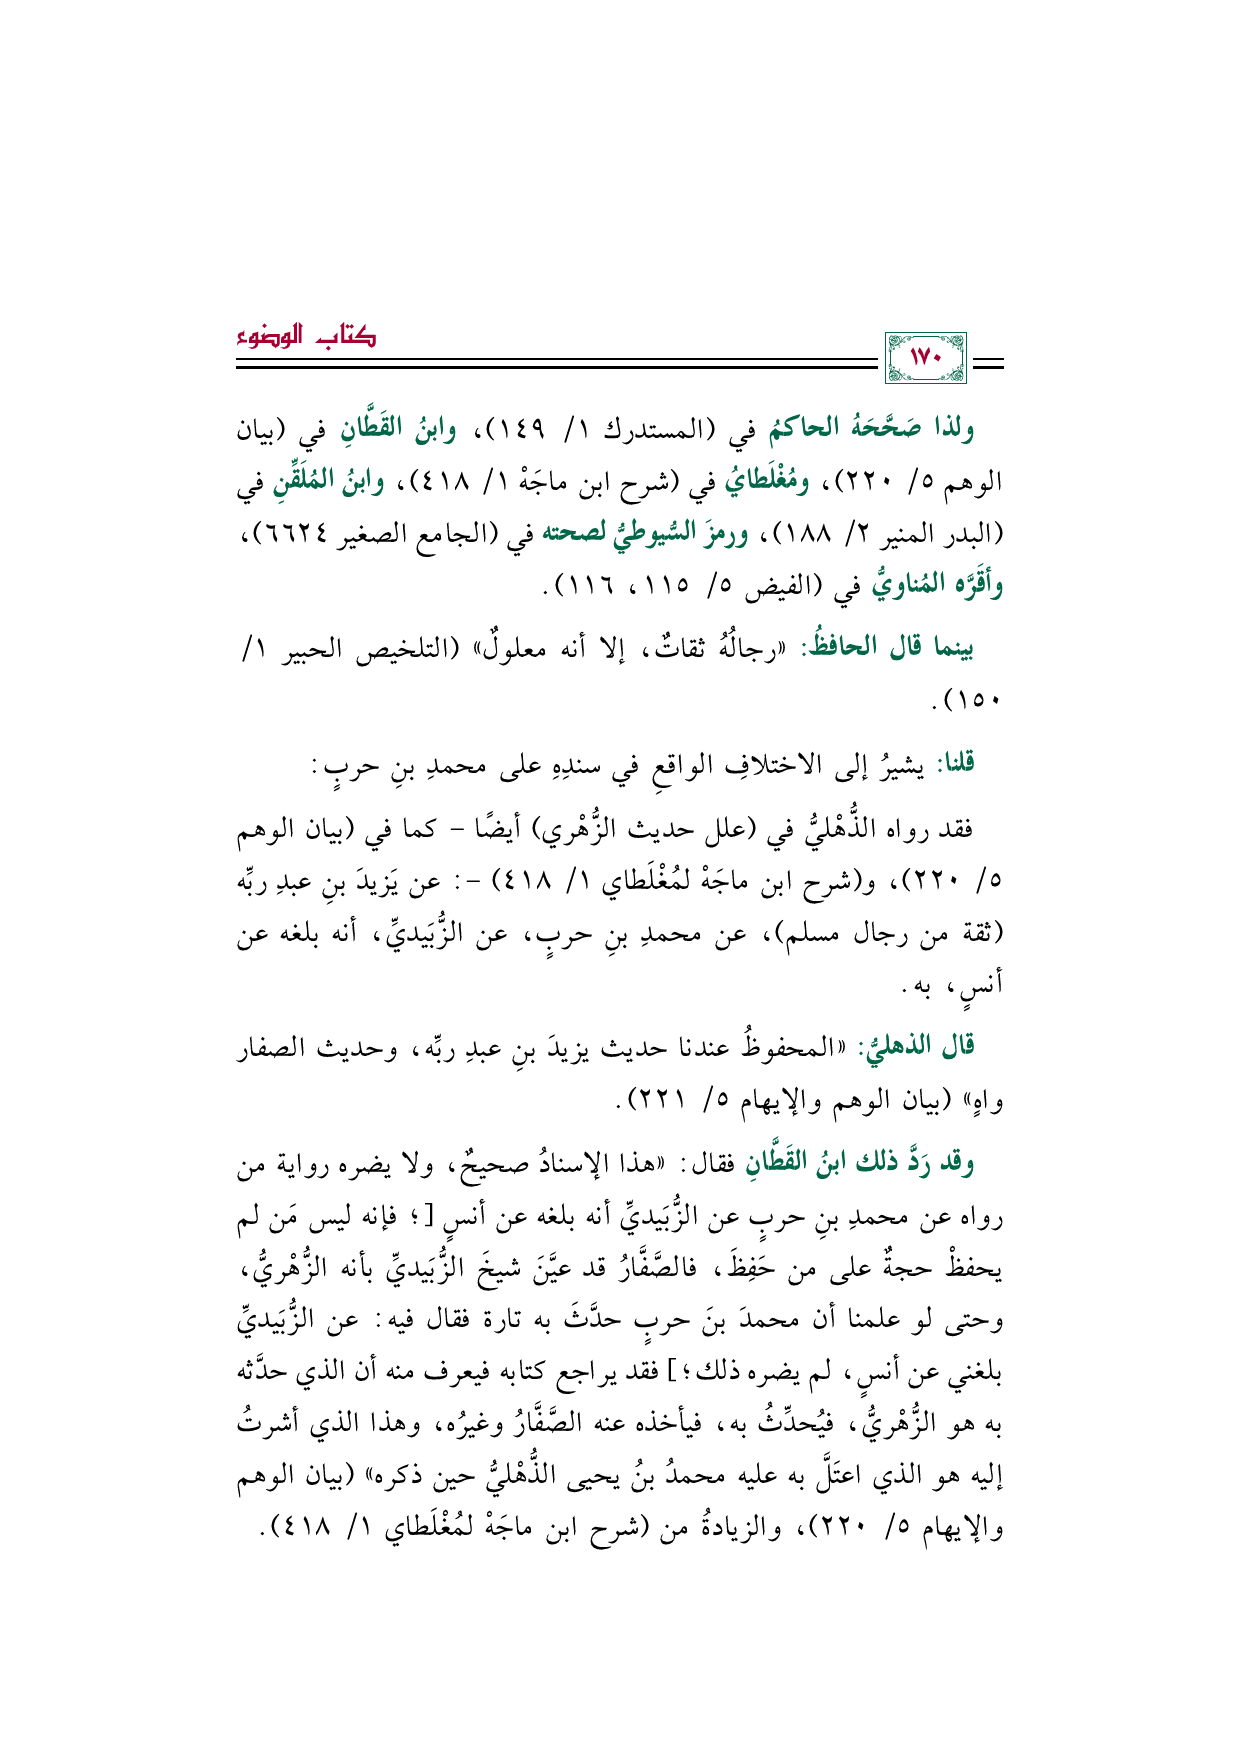 كتاب الوضوء
١٧٠
ولذا صَحَّحَهُ الحاكمُ في (المستدرك ١/ ١٤٩)، وابنُ القَطَّانِ في (بيان
الوهم ٥/ ٢٢٠)، ومُغْلَطايُ في (شرح ابن ماجَهْ ١/ ٤١٨)، وابنُ المُلَقِّنِ في
(البدر المنير ٢/ ١٨٨)، ورمزَ السُّيوطيُّ لصحته في (الجامع الصغير ٦٦٢٤)،
وأقَرَّه المُناويُّ في (الفيض ٥/ ١١٥، ١١٦).
بينما قال الحافظُ: «رجالُهُ ثقاتٌ، إلا أنه معلولٌ» (التلخيص الحبير ١/
١٥٠).
قلنا: يشيرُ إلى الاختلافِ الواقعِ في سندِهِ على محمدِ بنِ حربٍ:
فقد رواه الذُّهْليُّ في (علل حديث الزُّهْري) أيضًا - كما في (بيان الوهم
٥/ ٢٢٠)، و(شرح ابن ماجَهْ لمُغْلَطاي ١/ ٤١٨) -: عن يَزيدَ بنِ عبدِ ربِّه
(ثقة من رجال مسلم)، عن محمدِ بنِ حربٍ، عن الزُّبَيديِّ، أنه بلغه عن
أنسٍ، به.
قال الذهليُّ: «المحفوظُ عندنا حديث يزيدَ بنِ عبدِ ربِّه، وحديث الصفار
واهٍ» (بيان الوهم والإيهام ٥/ ٢٢١).
وقد رَدَّ ذلك ابنُ القَطَّانِ فقال: «هذا الإسنادُ صحيحٌ، ولا يضره رواية من
رواه عن محمدِ بنِ حربٍ عن الزُّبَيديِّ أنه بلغه عن أنسٍ [؛ فإنه ليس مَن لم
يحفظْ حجةٌ على من حَفِظَ، فالصَّفَّارُ قد عيَّنَ شيخَ الزُّبَيديِّ بأنه الزُّهْريُّ،
وحتى لو علمنا أن محمدَ بنَ حربٍ حدَّثَ به تارة فقال فيه: عن الزُّبَيديِّ
بلغني عن أنسٍ، لم يضره ذلك؛] فقد يراجع كتابه فيعرف منه أن الذي حدَّثه
به هو الزُّهْريُّ، فيُحدِّثُ به، فيأخذه عنه الصَّفَّارُ وغيرُه، وهذا الذي أشرتُ
إليه هو الذي اعتَلَّ به عليه محمدُ بنُ يحيى الذُّهْليُّ حين ذكره» (بيان الوهم
والإيهام ٥/ ٢٢٠)، والزيادةُ من (شرح ابن ماجَهْ لمُغْلَطاي ١/ ٤١٨).